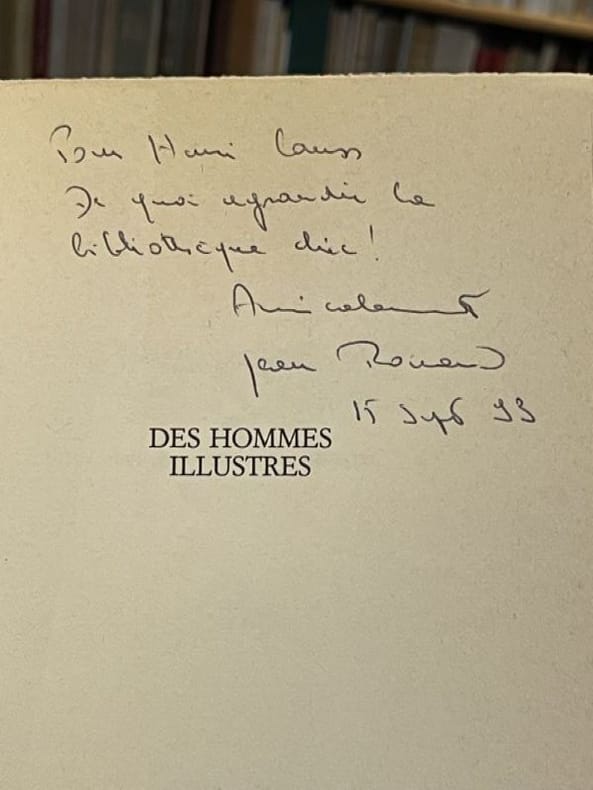 Pour Henri
De quoi agrandir la
bibliothèque chic !
Amicalement
Jean Rouaud
15 Sept 93
DES HOMMES
ILLUSTRES